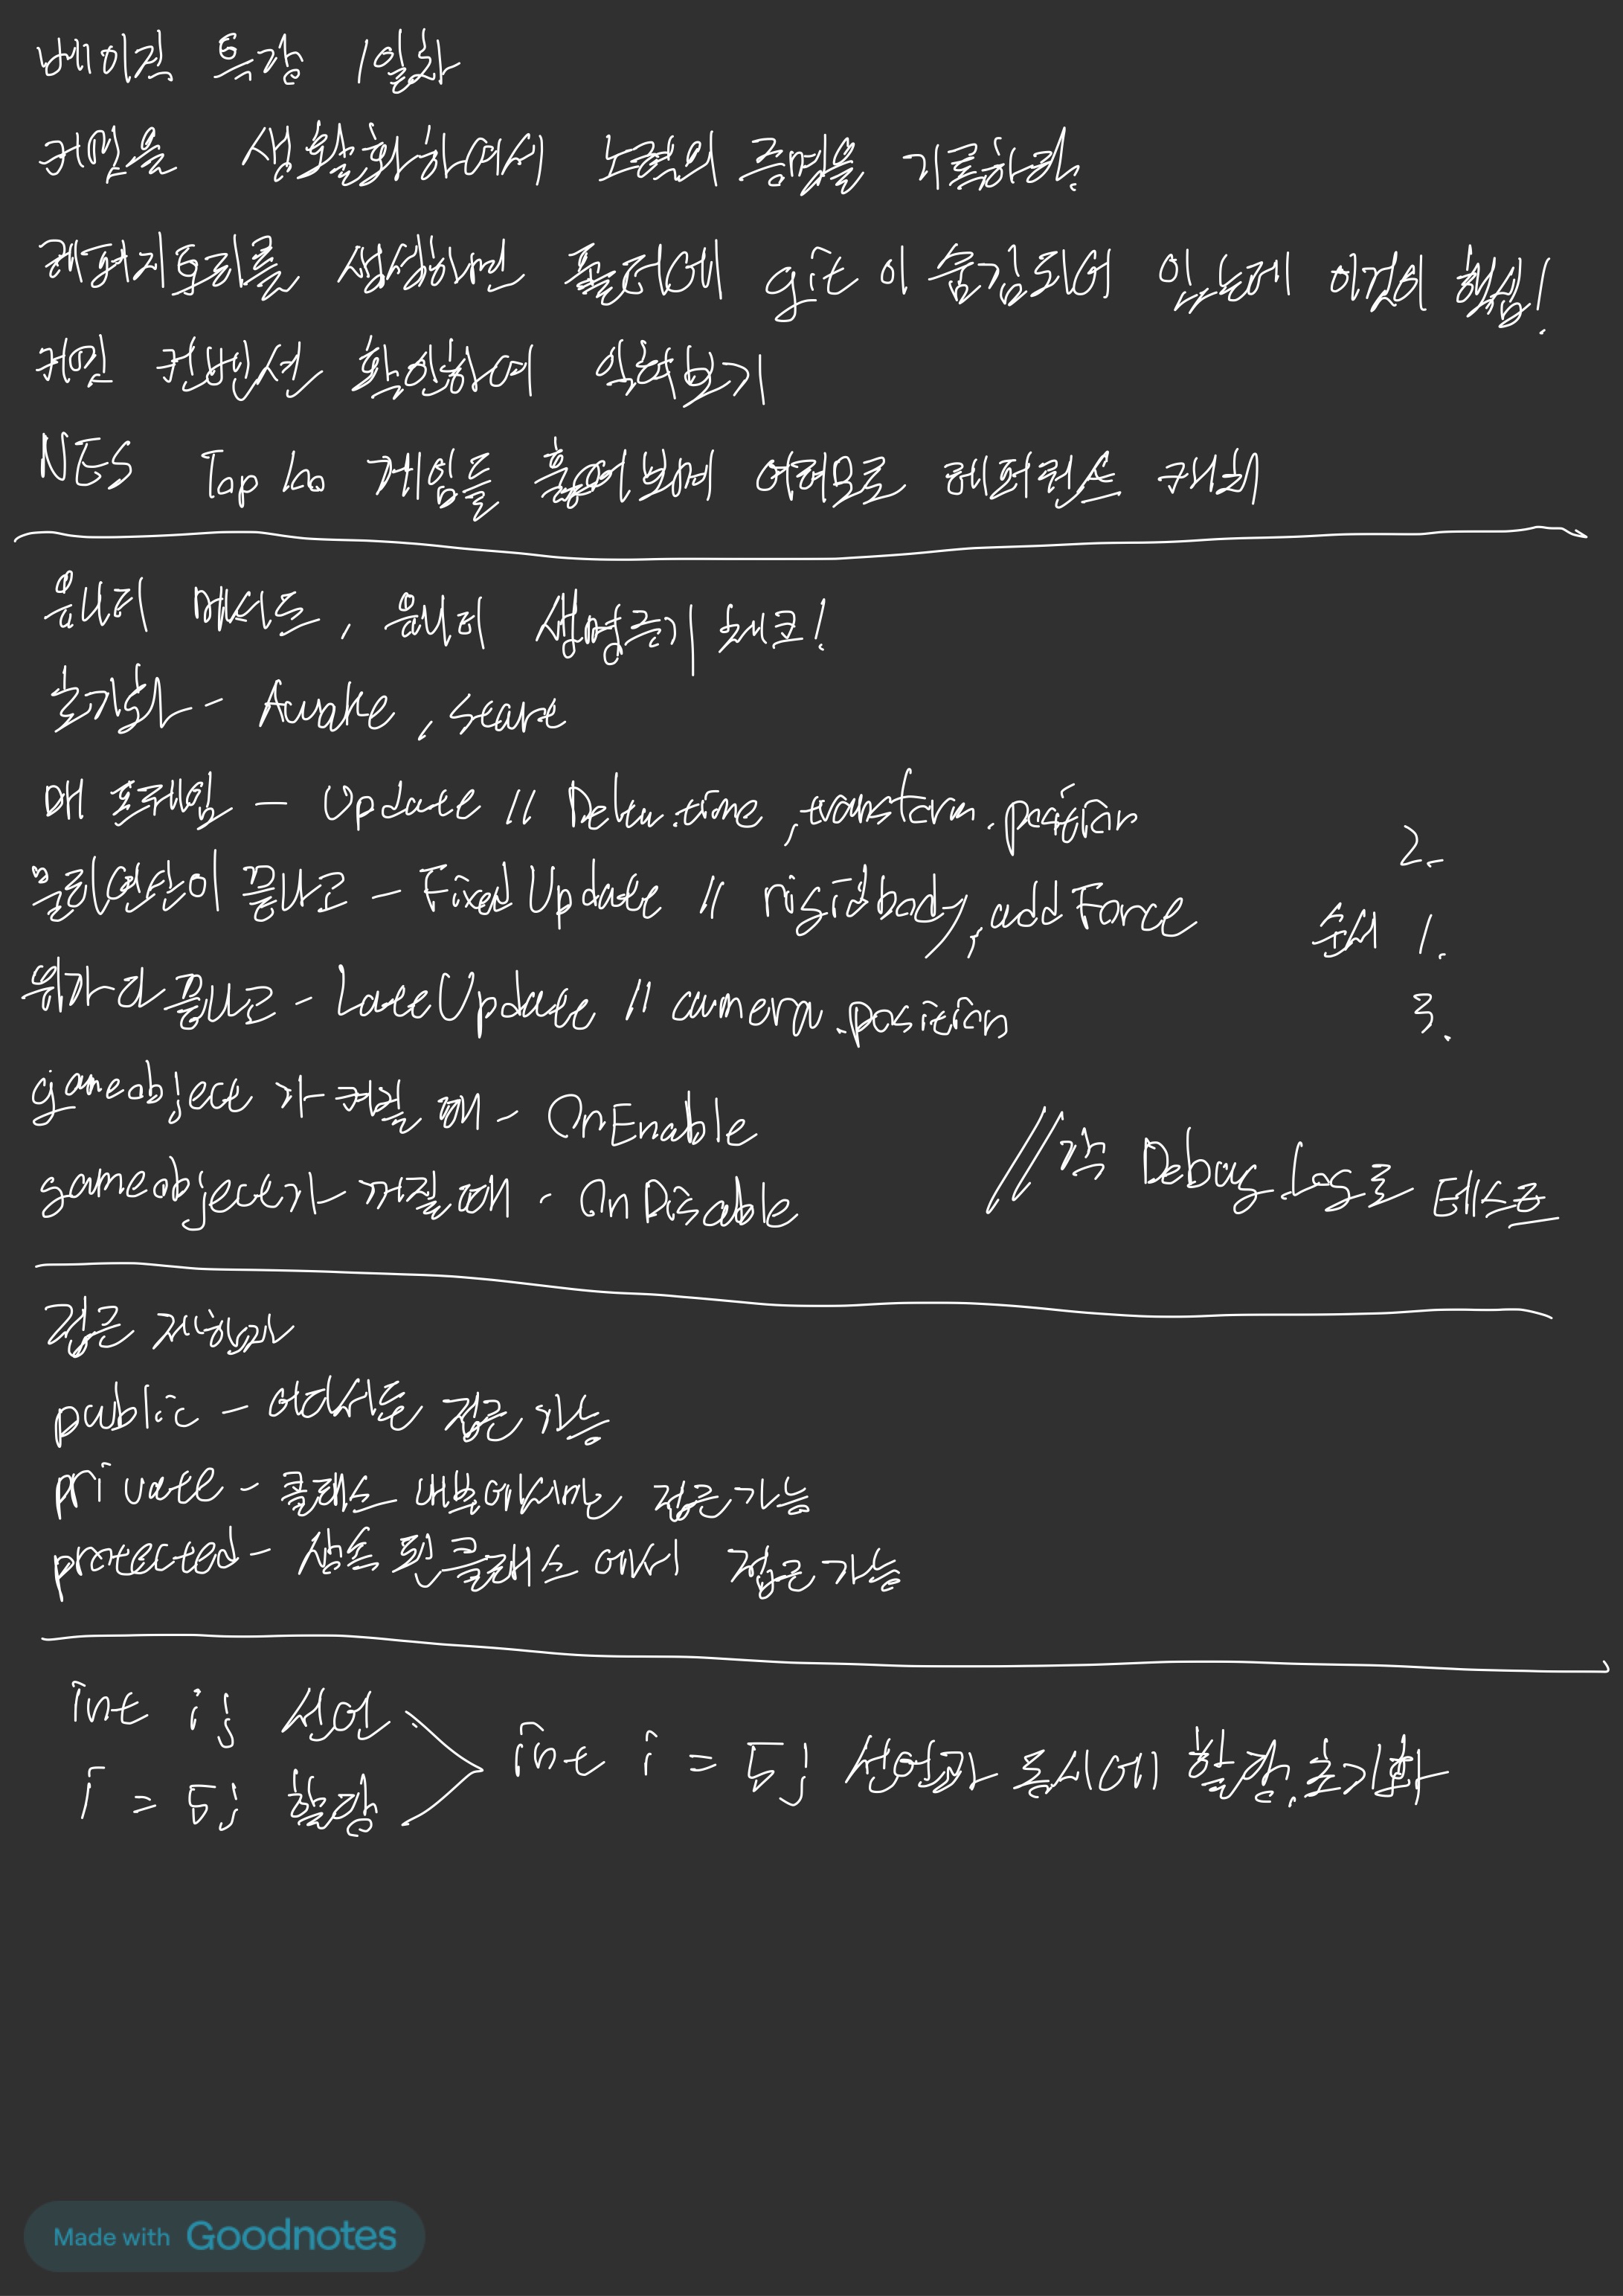 베이직 특강 1일차
커밋은 상황하에서 노력의 과정을 기록하라.
레퍼지토리를 생성하면 폴더에 git이 숨김되어 있는데 이것이 핵심!
커밋 컨벤션 확인하여 익혀보기
NES Top 100 게임을 훑어보며 여러모로 레퍼런스 구비하기
유니티 메서드, 유니티 생명주기 체크!
초기화 - Awake, Start
매 프레임 - Update // Delta.time, transform.position
2.
물리연산이 끝나고 - Fixed Update // rigidbody, addForce
순서 1.
뭐가 다 끝나고 - Late Update // camera.position
3.
gameobject가 켜질 때 - OnEnable
gameobject가 꺼질 때 - OnDisable
//각각 Debug.Log로 테스트
접근 제한자
public - 어디서든 접근 가능
private - 클래스 내부에서만 접근 가능
protected - 상속된 클래스에서 접근 가능
int i; 선언
i = 5; 할당
int i = 5; 선언과 동시에 할당, 초기화
Made with Goodnotes